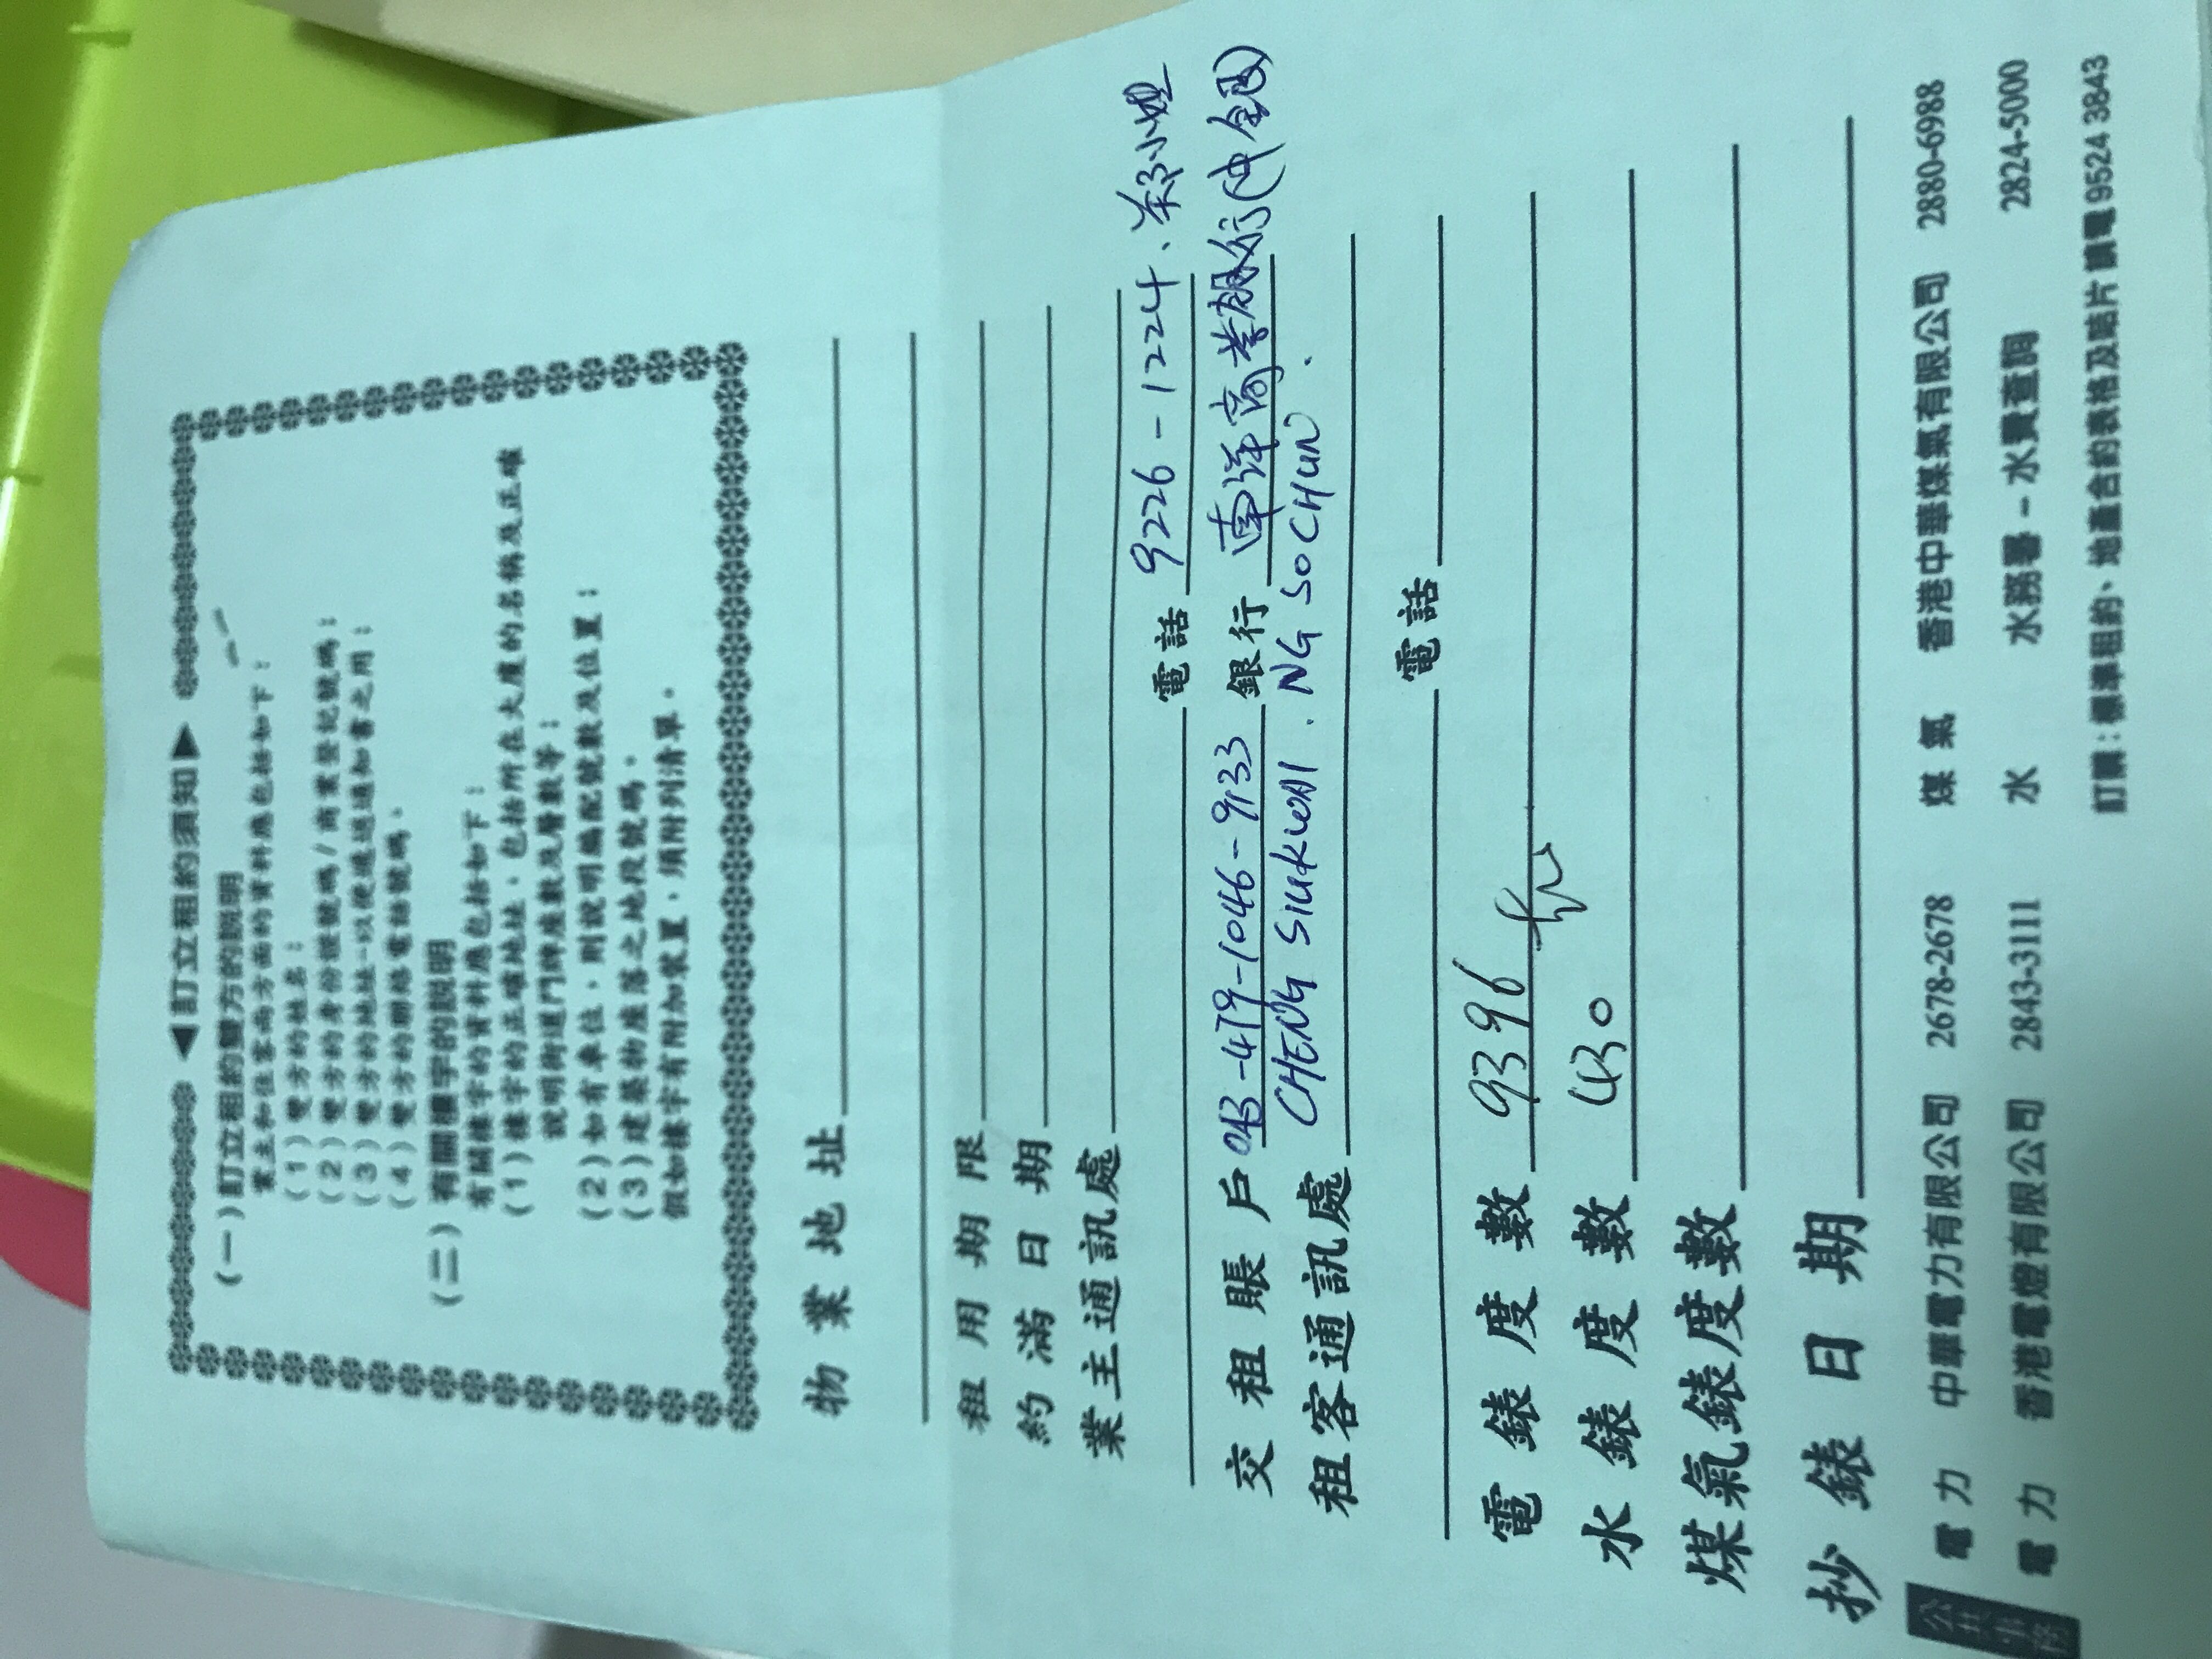 ◀訂立租約須知▶
(一)訂立租約雙方的說明
業主和住客兩方面的資料應包括如下：
(1)雙方的姓名；
(2)雙方的身份證號碼/商業登記號碼；
(3)雙方的地址—以便遞送通知書之用；
(4)雙方的聯絡電話號碼。
(二)有關樓宇的說明
有關樓宇的資料應包括如下：
(1)樓宇的正確地址，包括所在大廈的名稱及正確
說明街道門牌座數及層數等；
(2)如有車位，則說明編配號數及位置；
(3)建築物座落之地段號碼。
假如樓宇有附加裝置，須附列清單。
物業地址
租用期限
約滿日期
業主通訊處
電話 9226-1224、小姐
交租賬戶 043-479-1046-9133 銀行 南洋商業銀行(中銀)
CHENG SIUKWAI . NG SO CHUN .
租客通訊處
電話
電錶度數 9396
水錶度數 430
煤氣錶度數
抄錶日期
公共事務
電力 中華電力有限公司 2678-2678 煤氣 香港中華煤氣有限公司 2880-6988
電力 香港電燈有限公司 2843-3111 水 水務署－水費查詢 2824-5000
訂購：標準租約、地產合約表格及咭片 請電 9524 3843